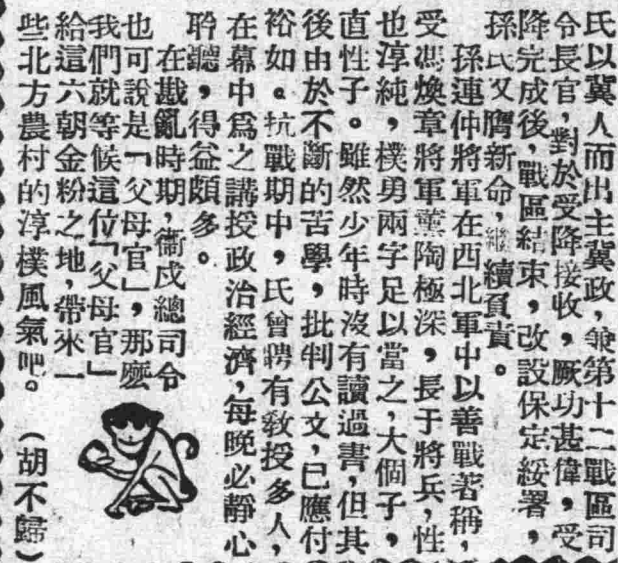 氏以冀人而出主冀政，兼第十二戰區司
令長官，對於受降接收，厥功甚偉，受
降完成後，戰區結束，改設保定綏署，
孫氏又膺新命，繼續負責。
孫連仲將軍在西北軍中以善戰著稱，
受馮煥章將軍薰陶極深，長于將兵，性
也淳純，樸勇兩字足以當之，大個子，
直性子。雖然少年時沒有讀過書，但其
後由於不斷的苦學，批判公文，已應付
裕如。抗戰期中，氏曾聘有敎授多人，
在幕中爲之講授政治經濟，每晚必靜心
聆聽，得益頗多。
在戡亂時期，衞戍總司令
也可說是「父母官」，那麽
我們就等候這位「父母官」
給這六朝金粉之地，帶來一
些北方農村的淳樸風氣吧。
（胡不歸）